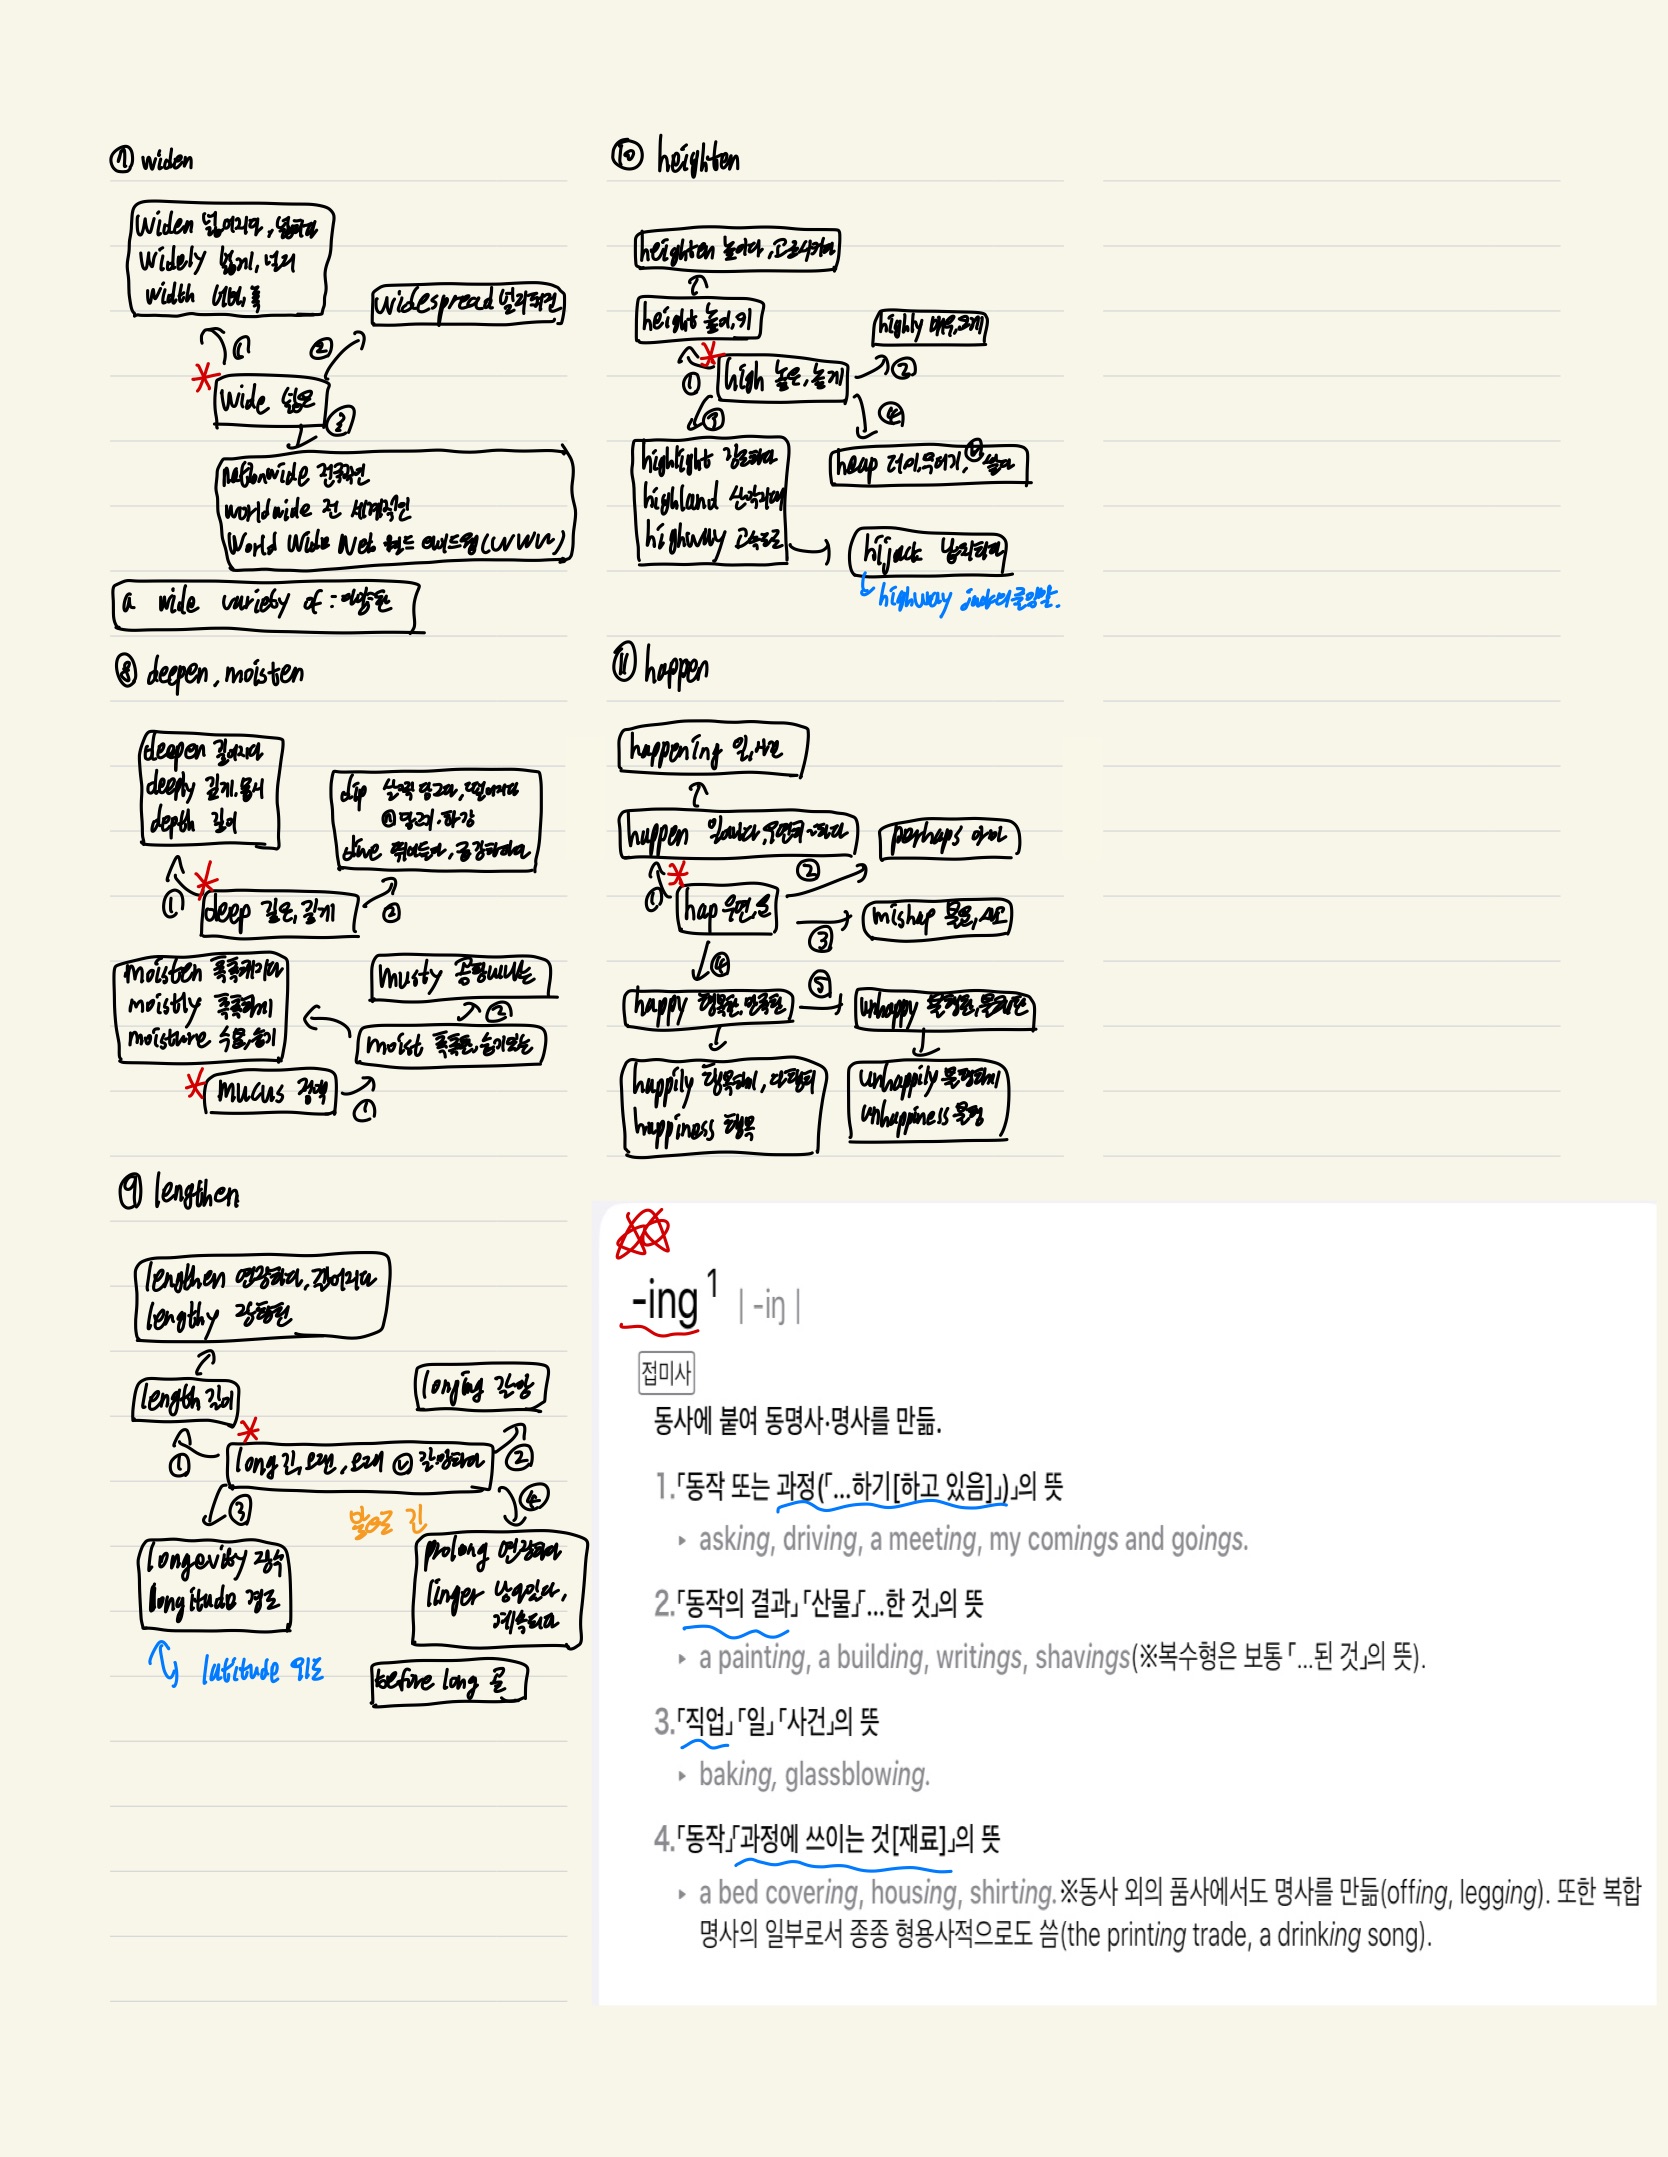 ⑦ widen
widen 넓어지다, 넓히다
widely 넓게, 널리
width 너비, 폭
widespread 널리퍼진
① ②
wide 넓은
③
nationwide 전국적인
worldwide 전 세계적인
World Wide Web 월드 와이드웹(WWW)
a wide variety of : 다양한
⑧ deepen, moisten
deepen 깊어지다
deeply 깊게, 몹시
depth 깊이
dip 살짝 담그다, 떨어지다
ⓝ 담그기·하강
dive 뛰어들다, 급강하하다
① ②
deep 깊은, 깊게
moisten 촉촉해지다
moistly 촉촉하게
moisture 수분, 습기
musty 곰팡내나는
②
moist 촉촉한, 습기있는
mucus 점액
①
⑨ lengthen
lengthen 연장하다, 길어지다
lengthy 장황한
length 길이
longing 갈망
① ②
long 긴, 오랜, 오래 ⓥ 갈망하다
③ ④
longevity 장수
longitude 경도
latitude 위도
prolong 연장하다
linger 남아있다,
계속되다
before long 곧
⑩ heighten
heighten 높이다, 고조시키다
height 높이, 키
highly 매우, 크게
① ②
high 높은, 높게
③ ④
highlight 강조하다
highland 산악지대
highway 고속도로
heap 더미, 무더기, ⓥ 쌓다
hijack 납치하다
highway jack의 줄임말.
⑪ happen
happening 일, 사건
happen 일어나다, 우연히 ~하다
perhaps 아마
① ②
hap 우연, 운
③
mishap 불운, 사고
④ ⑤
happy 행복한, 만족한
unhappy 불행한, 불만족한
happily 행복하게, 다행히
happiness 행복
unhappily 불행하게
unhappiness 불행
-ing¹ | -iŋ |
접미사
동사에 붙여 동명사·명사를 만듦.
1.「동작 또는 과정(「…하기[하고 있음]」)」의 뜻
▸ asking, driving, a meeting, my comings and goings.
2.「동작의 결과」「산물」「…한 것」의 뜻
▸ a painting, a building, writings, shavings(※복수형은 보통 「…된 것」의 뜻).
3.「직업」「일」「사건」의 뜻
▸ baking, glassblowing.
4.「동작」「과정에 쓰이는 것[재료]」의 뜻
▸ a bed covering, housing, shirting.※동사 외의 품사에서도 명사를 만듦(offing, legging). 또한 복합
명사의 일부로서 종종 형용사적으로도 씀(the printing trade, a drinking song).